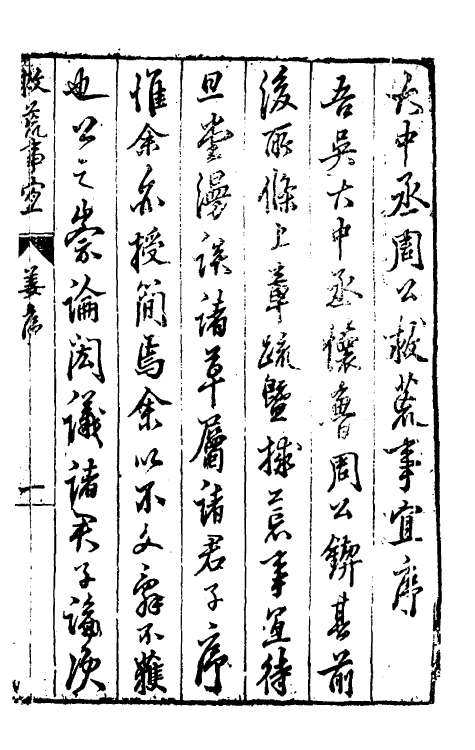 大中丞周公救荒事宜序
吾吳大中丞懷魯周公鍥其前
後所條上章疏暨救荒事宜待
旦堂漫談諸草屬諸君子序
惟余亦授簡焉余以不文辭不獲
也公之崇論閎議諸君子論次
救荒事宜
姜序
一